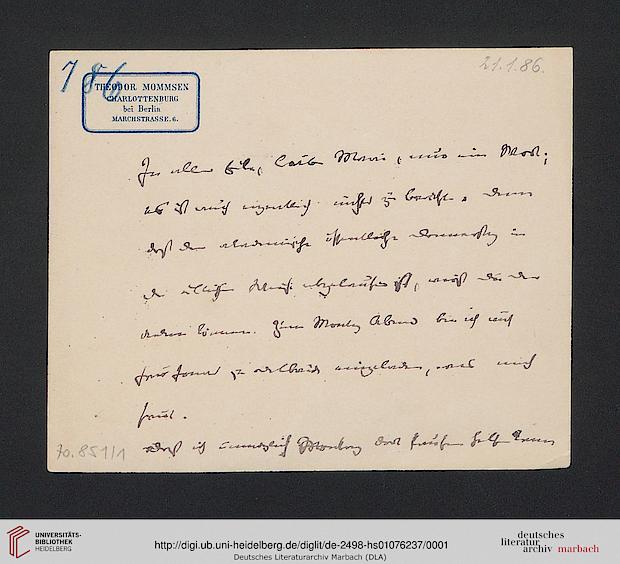 7 86
21.1.86.
THEODOR MOMMSEN
CHARLOTTENBURG
bei Berlin
MARCHSTRASSE. 6.
In aller Eile, liebe Marie, nur ein Wort;
es ist auch eigentlich nichts zu berichten. Denn
daß der akademische öffentliche Donnerstag in
der üblichen Weise abgelaufen ist, weißt du
können. Zum Montag Abend bin ich auf
zu eingeladen, was mich
freut.
Daß ich Montag dort
70.851/1
UNIVERSITÄTS-
BIBLIOTHEK
HEIDELBERG
http://digi.ub.uni-heidelberg.de/diglit/de-2498-hs01076237/0001
Deutsches Literaturarchiv Marbach (DLA)
deutsches
literatur
archiv marbach